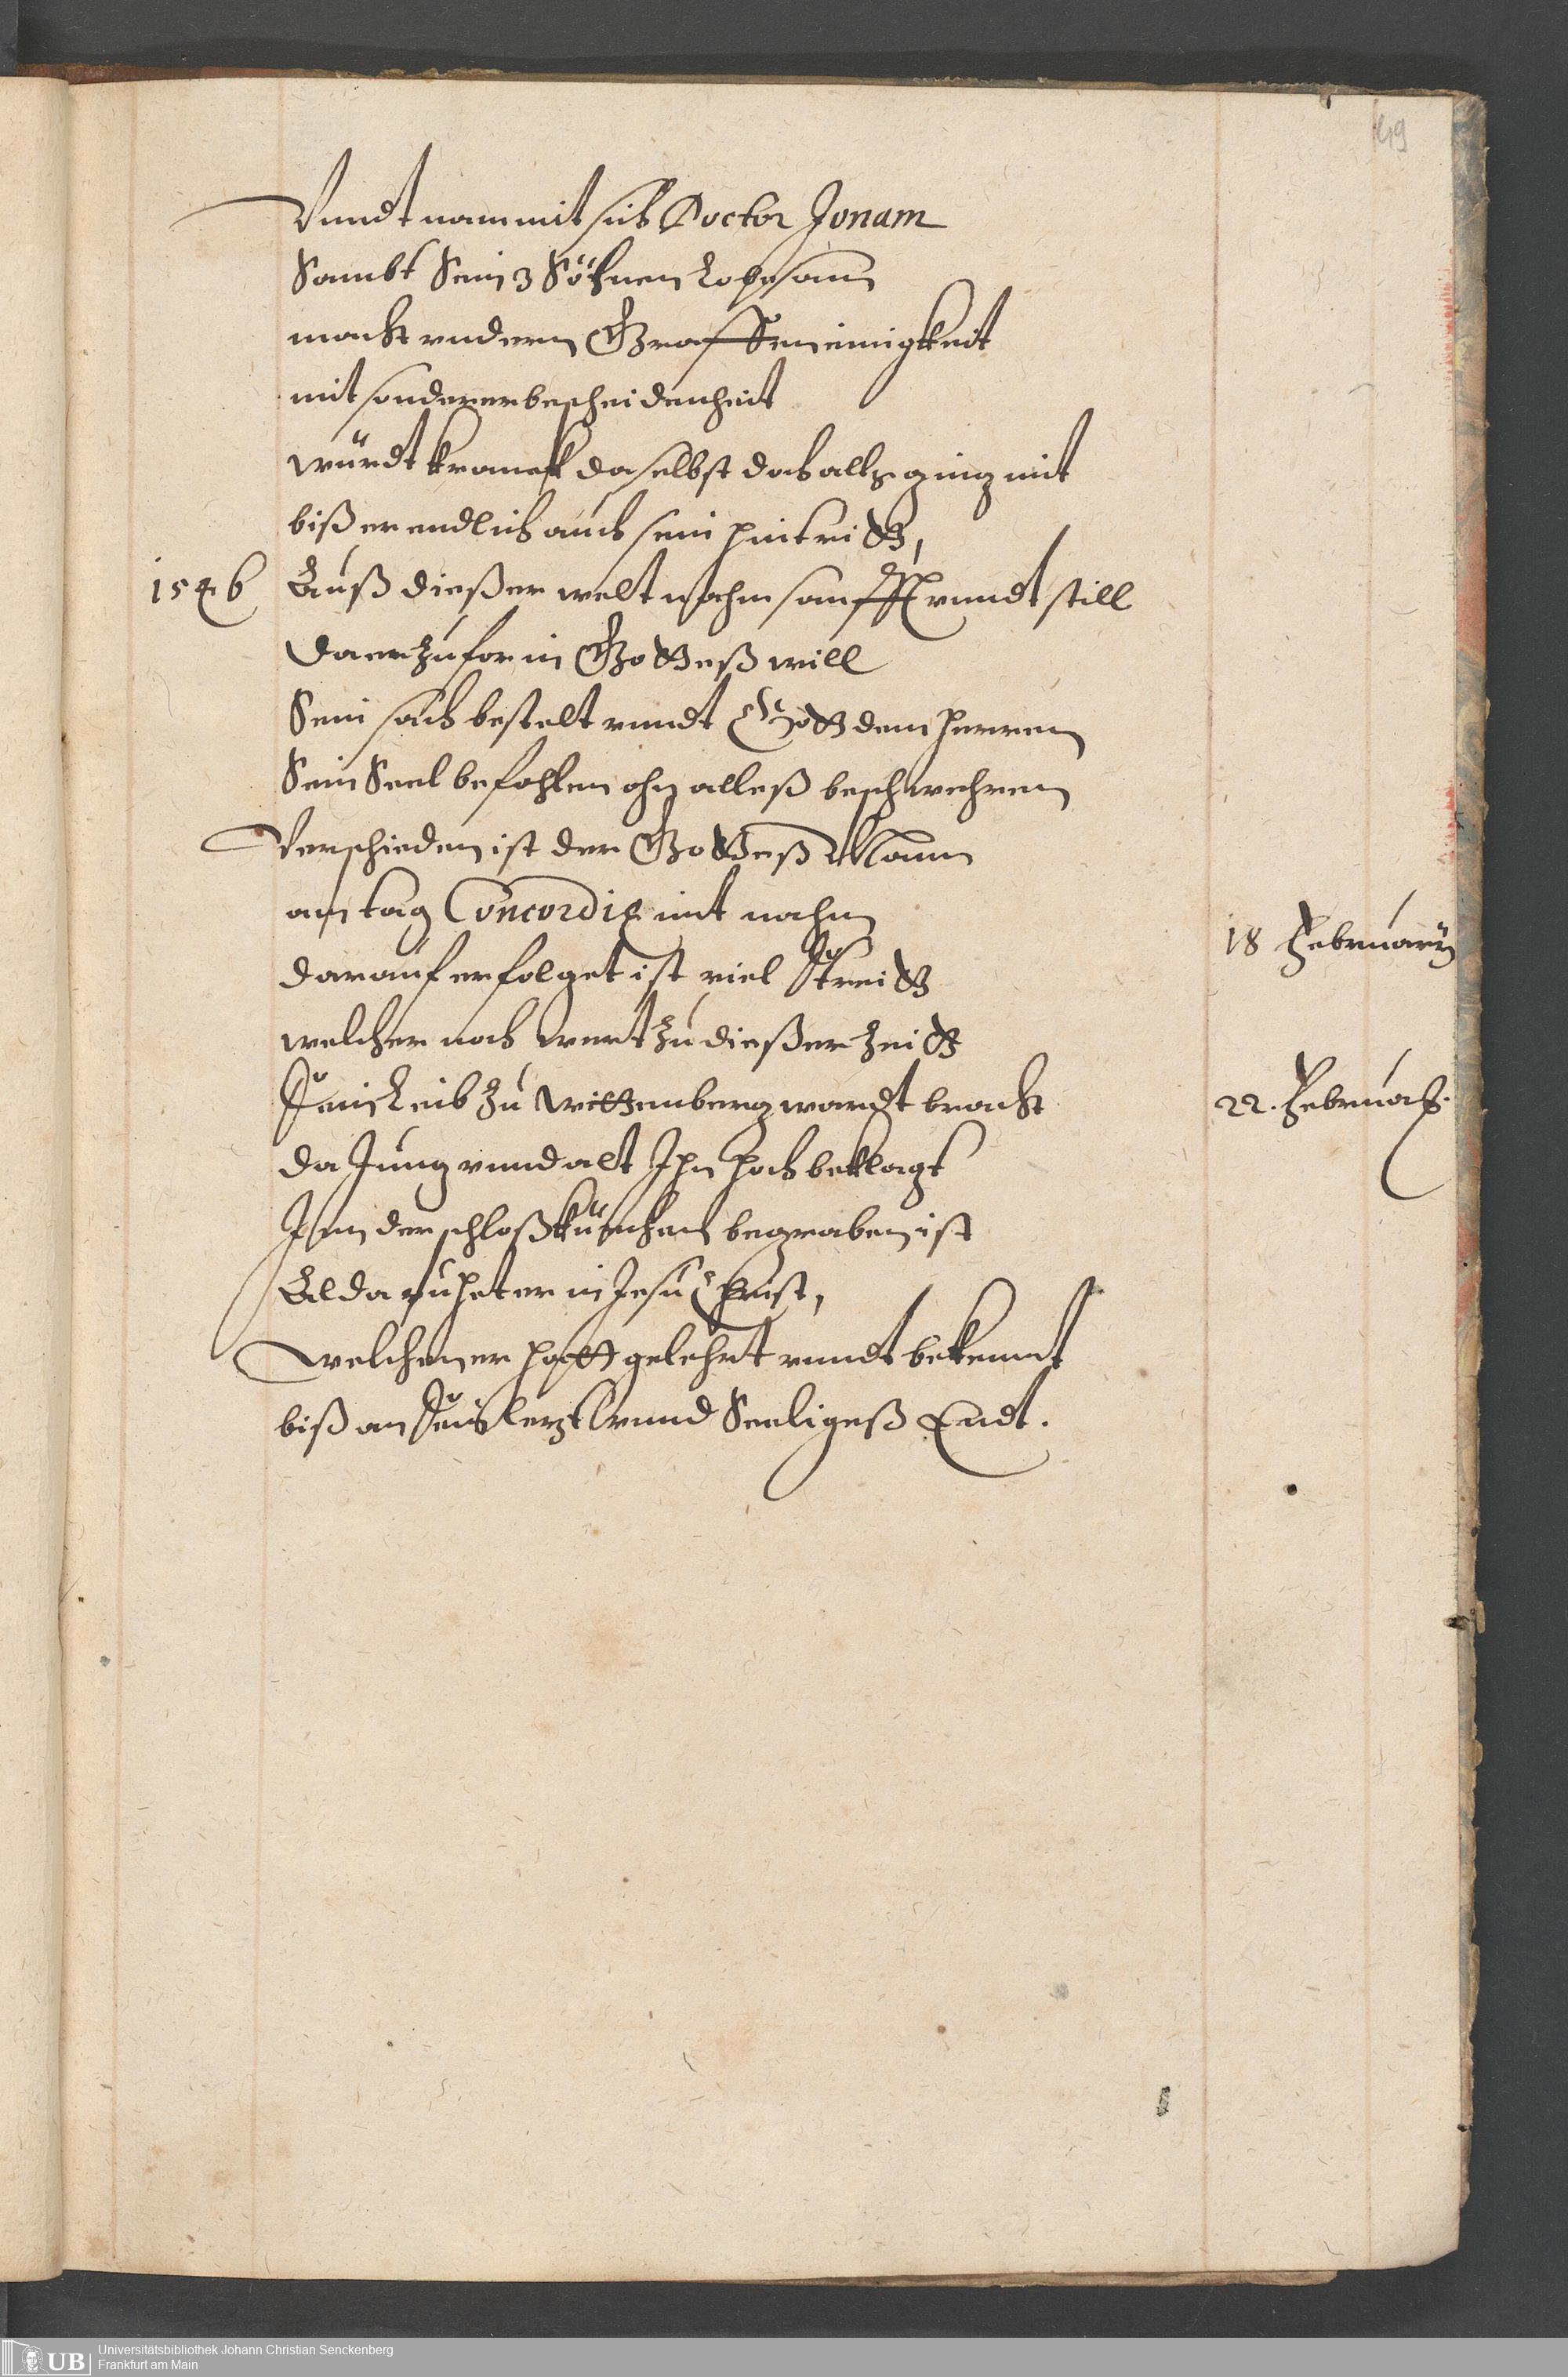 49
Vnndt nam mit sich Doctor Jonam
Sambt Sein 3 Söhnen Lobesam
macht vndern Graffen einigkeit
mit sonderer bescheidenheit
würdt kranck daselbst doch alls ging mit
biß er endlich auch sein hintritt,
1546 Auß dießer welt nahm sanfft vnndt still
Da er zufor in Gottes will
Sein sach bestelt vnndt Gott dem herren
Sein Seel befohlen ohn alleß beschwehren
Verschieden ist der Gotteß Mann
am tag Concordiæ mit nahm 18 February
darauf erfolget ist viel Streitt
welcher noch wert zu dießer Zeitt
Sein Leib zu Wittemberg wardt bracht 22. Februar.
da Jung vnnd alt Ihn hoch beklagt
Inn der schloßkürchen begraben ist
Alda ruhet er in Jesu Christ,
welchen er hatt gelehrt vnndt bekennt
biß an Sein letzt vnnd Seeligeß Endt.
UB Universitätsbibliothek Johann Christian Senckenberg
Frankfurt am Main